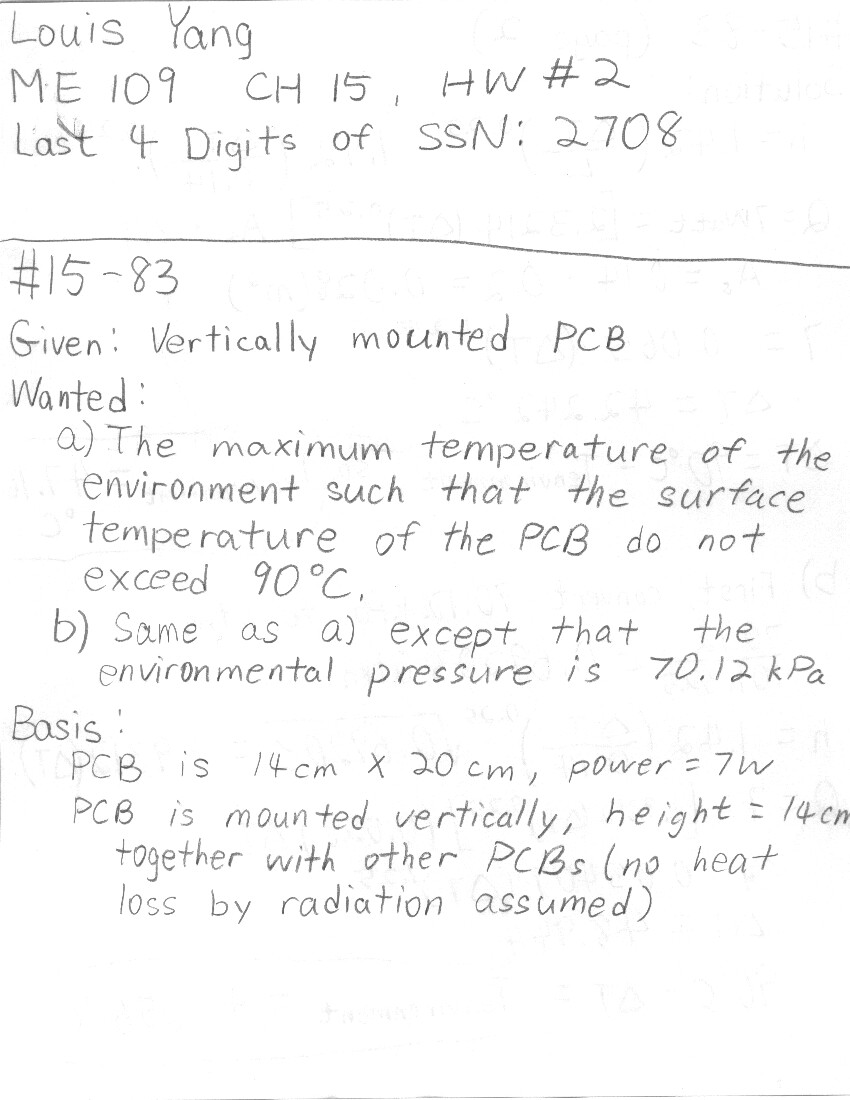 Louis Yang
ME 109 CH 15, HW #2
Last 4 Digits of SSN: 2708
#15-83
Given: Vertically mounted PCB
Wanted:
a) The maximum temperature of the
environment such that the surface
temperature of the PCB do not
exceed 90°C.
b) Same as a) except that the
environmental pressure is 70.12 kPa
Basis:
PCB is 14cm X 20cm, power = 7W
PCB is mounted vertically, height = 14cm
together with other PCBs (no heat
loss by radiation assumed)